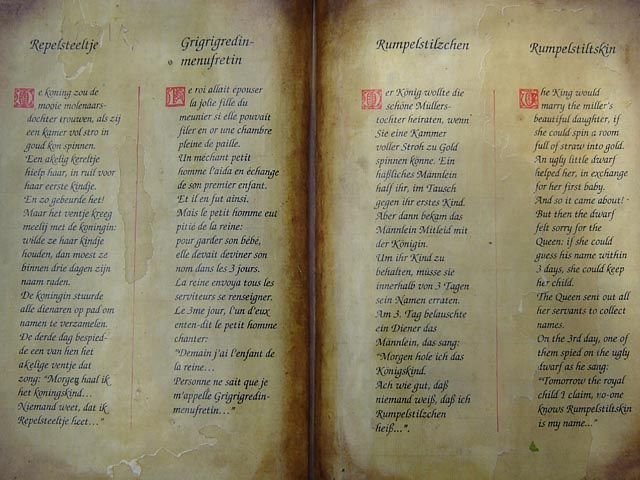 Repelsteeltje
De koning zou de
mooie molenaars-
dochter trouwen, als zij
een kamer vol stro in
goud kon spinnen.
Een akelig kereltje
hielp haar, in ruil voor
haar eerste kindje.
En zo gebeurde het!
Maar het ventje kreeg
meelij met de koningin:
wilde ze haar kindje
houden, dan moest ze
binnen drie dagen zijn
naam raden.
De koningin stuurde
alle dienaren op pad om
namen te verzamelen.
De derde dag bespied-
de een van hen het
akelige ventje dat
zong: "Morgen haal ik
het koningskind...
Niemand weet, dat ik
Repelsteeltje heet..."
Grigrigredin-
menufretin
Le roi allait épouser
la jolie fille du
meunier si elle pouvait
filer en or une chambre
pleine de paille.
Un méchant petit
homme l'aida en échange
de son premier enfant.
Et il en fut ainsi.
Mais le petit homme eut
pitié de la reine:
pour garder son bébé,
elle devait deviner son
nom dans les 3 jours.
La reine envoya tous les
serviteurs se renseigner.
Le 3me jour, l'un d'eux
enten-dit le petit homme
chanter:
"Demain j'ai l'enfant de
la reine...
Personne ne sait que je
m'appelle Grigrigredin-
menufretin..."
Rumpelstilzchen
Der König wollte die
schöne Müllers-
tochter heiraten, wenn
Sie eine Kammer
voller Stroh zu Gold
spinnen könne. Ein
häßliches Männlein
half ihr, im Tausch
gegen ihr erstes Kind.
Aber dann bekam das
Männlein Mitleid mit
der Königin.
Um ihr Kind zu
behalten, müsse sie
innerhalb von 3 Tagen
sein Namen erraten.
Am 3. Tag belauschte
ein Diener das
Männlein, das sang:
"Morgen hole ich das
Königskind.
Ach wie gut, daß
niemand weiß, daß ich
Rumpelstilzchen
heiß...".
Rumpelstiltskin
The King would
marry the miller's
beautiful daughter, if
she could spin a room
full of straw into gold.
An ugly little dwarf
helped her, in exchange
for her first baby.
And so it came about!
But then the dwarf
felt sorry for the
Queen: if she could
guess his name within
3 days, she could keep
her child.
The Queen sent out all
her servants to collect
names.
On the 3rd day, one of
them spied on the ugly
dwarf as he sang:
"Tomorrow the royal
child I claim, no-one
knows Rumpelstiltskin
is my name..."